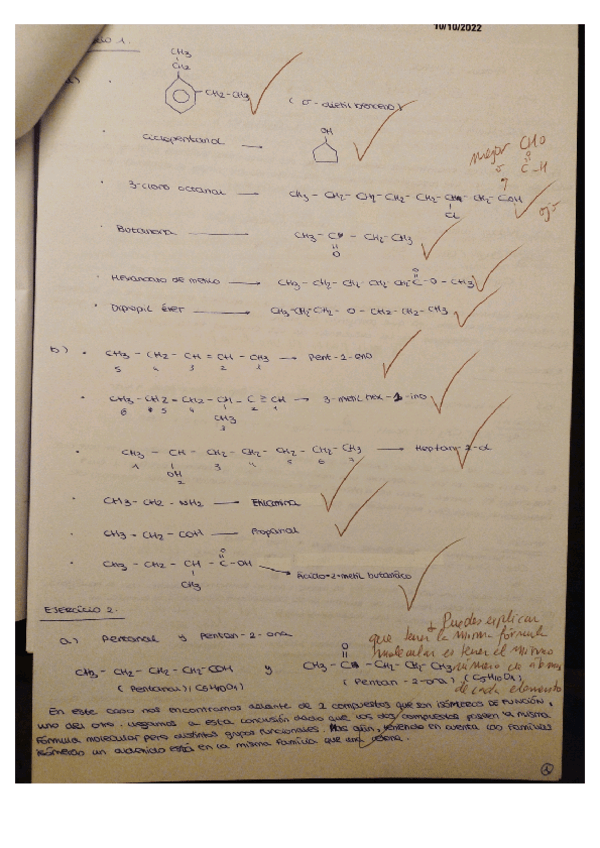 10/10/2022
1.
CH3
CH2
CH2-CH3
(o-dietil benceno)
Ciclopentanol
OH
mejor CHO
o
O
C-H
3-cloro octanal
CH3 - CH2 - CH2 - CH2 - CH2 - CH - CH2 - COH
Cl
ojo
Butanona
CH3 - C - CH2 - CH3
O
Hexanoato de metilo
O
CH3 - CH2 - CH2 CH2 CH2 C - O - CH3
Dipropil éter
CH3-CH2-CH2 - O - CH2-CH2-CH3
b)
CH3 - CH2 - CH = CH - CH3
Pent-2-eno
5 4 3 2 1
CH3 - CH2 - CH2 - CH - C ≡ CH
3-metil hex-1-ino
6 5 4 2 1
CH3
3
CH3 - CH - CH2 - CH2 - CH2 - CH2 - CH3
Heptan-2-ol
1 OH 3 4 5 6 7
2
CH3 - CH2 - NH2
Etilamina
CH3 - CH2 - COH
Propanal
O
CH3 - CH2 - CH - C - OH
CH3
Ácido-2-metil butanoico
Ejercicio 2.
a) Pentanal y Pentan-2-ona
Puedes explicar
que tener la misma fórmula
molecular es tener el mismo
número de átomos
de cada elemento
O
CH3 - CH2 - CH2 - CH2 - COH y CH3 - C - CH2 - CH2 CH3
(Pentanal) (C5H10O1) (Pentan-2-ona) (C5H10O1)
En este caso nos encontramos delante de 2 compuestos que son isómeros de función,
uno del otro. Llegamos a esta conclusión dado que los dos compuestos poseen la misma
fórmula molecular pero distintos grupos funcionales. Más aún, teniendo en cuenta las familias
isómeras un aldehído está en la misma familia que una cetona.
1